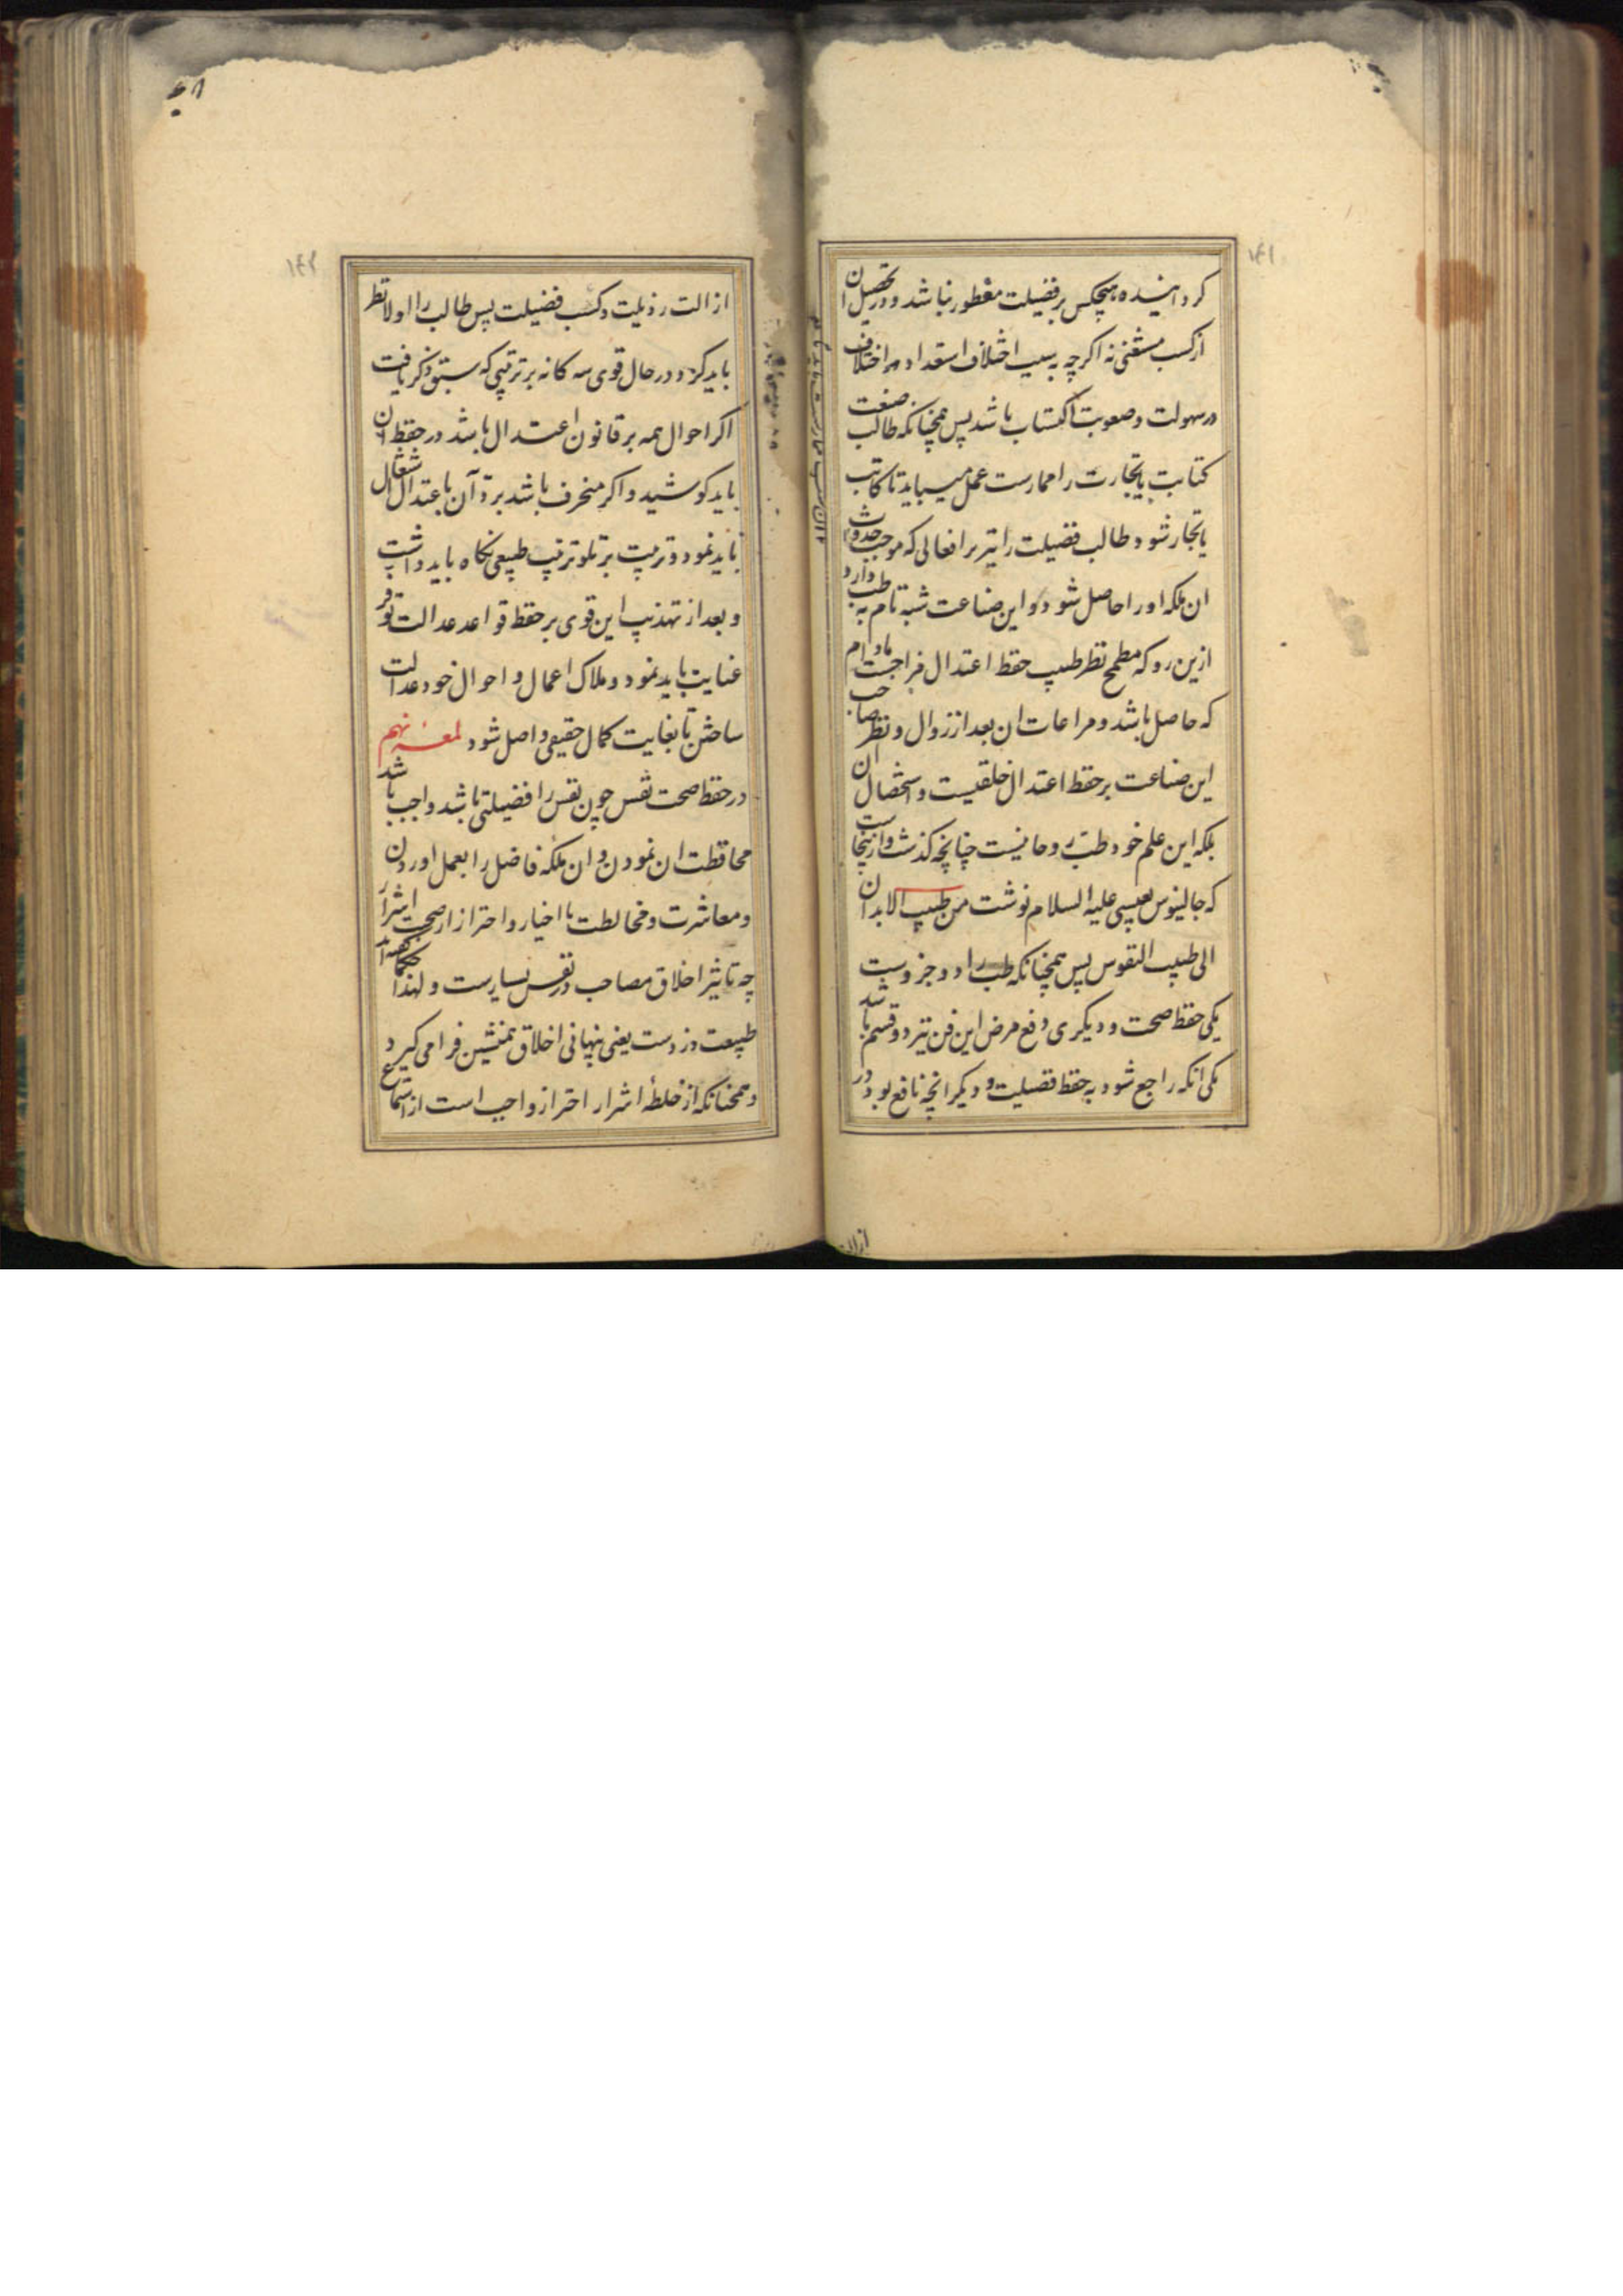 ۱۴۱
کرداینده هیچکس بر فضیلت مفطور نباشد و در تحصیل ان
از کسب مستغنی نه اکرچه به سبب اختلاف استعداد مر اختلاف
در سهولت و صعوبت اکتساب باشد پس همچنانکه طالب صنعت
کتابت یا تجارت را ممارست عمل میباید تا کاتب
یا تجار شود طالب فضیلت را نیز بر افعالی که موجب حدوث
ان ملکه او را حاصل شود و این صناعت شبه تام به طب دارد
ازین رو که مطمح نظر طبیب حفظ اعتدال مزاجست مادام
که حاصل باشد و مراعات ان بعد از زوال و نظر صاحب
این صناعت بر حفظ اعتدال خلقیست و استحصال ان
بلکه این علم خود طب روحانیست چنانچه کذشت و ازینجاست
که جالینوس بعیسی علیه السلام نوشت من طبیب الابدان
الی طبیب النفوس پس همچنانکه طب را دو جزوست
یکی حفظ صحت و دیکری دفع مرض این فن نیز دو قسم باشد
یکی انکه راجع شود به حفظ فضیلت و دیکر انچه نافع بود در
ازالت
۱۴۲
ازالت رذیلت و کسب فضیلت پس طالب را اولا نظر
باید کرد در حال قوی سه کانه بر ترتیبی که سبق ذکر یافت
اکر احوال همه بر قانون اعتدال باشد در حفظ ان
باید کوشید و اکر منحرف باشد برد آن باعتدال اشتغال
باید نمود و ترتیب بر تلو ترتیب طبیعی نکاه باید داشت
و بعد از تهذیب این قوی بر حفظ قواعد عدالت توفر
عنایت باید نمود و ملاک اعمال و احوال خود عدالت
ساختن تا بغایت کمال حقیقی واصل شود لمعه نهم
در حفظ صحت نفس چون نفس را فضیلتی باشد واجب باشد
محافظت ان نمودن و ان ملکه فاضل را بعمل اوردن
و معاشرت و مخالطت با اخیار و احتراز از صحبت اشرار
چه تاثیر اخلاق مصاحب در نفس بسیارست و لهذا حکما کفته‌اند
طبیعت دزدست یعنی پنهانی اخلاق همنشین فرا می کیرد
و همچنانکه از خلطهٔ اشرار احتراز واجب است از استماع